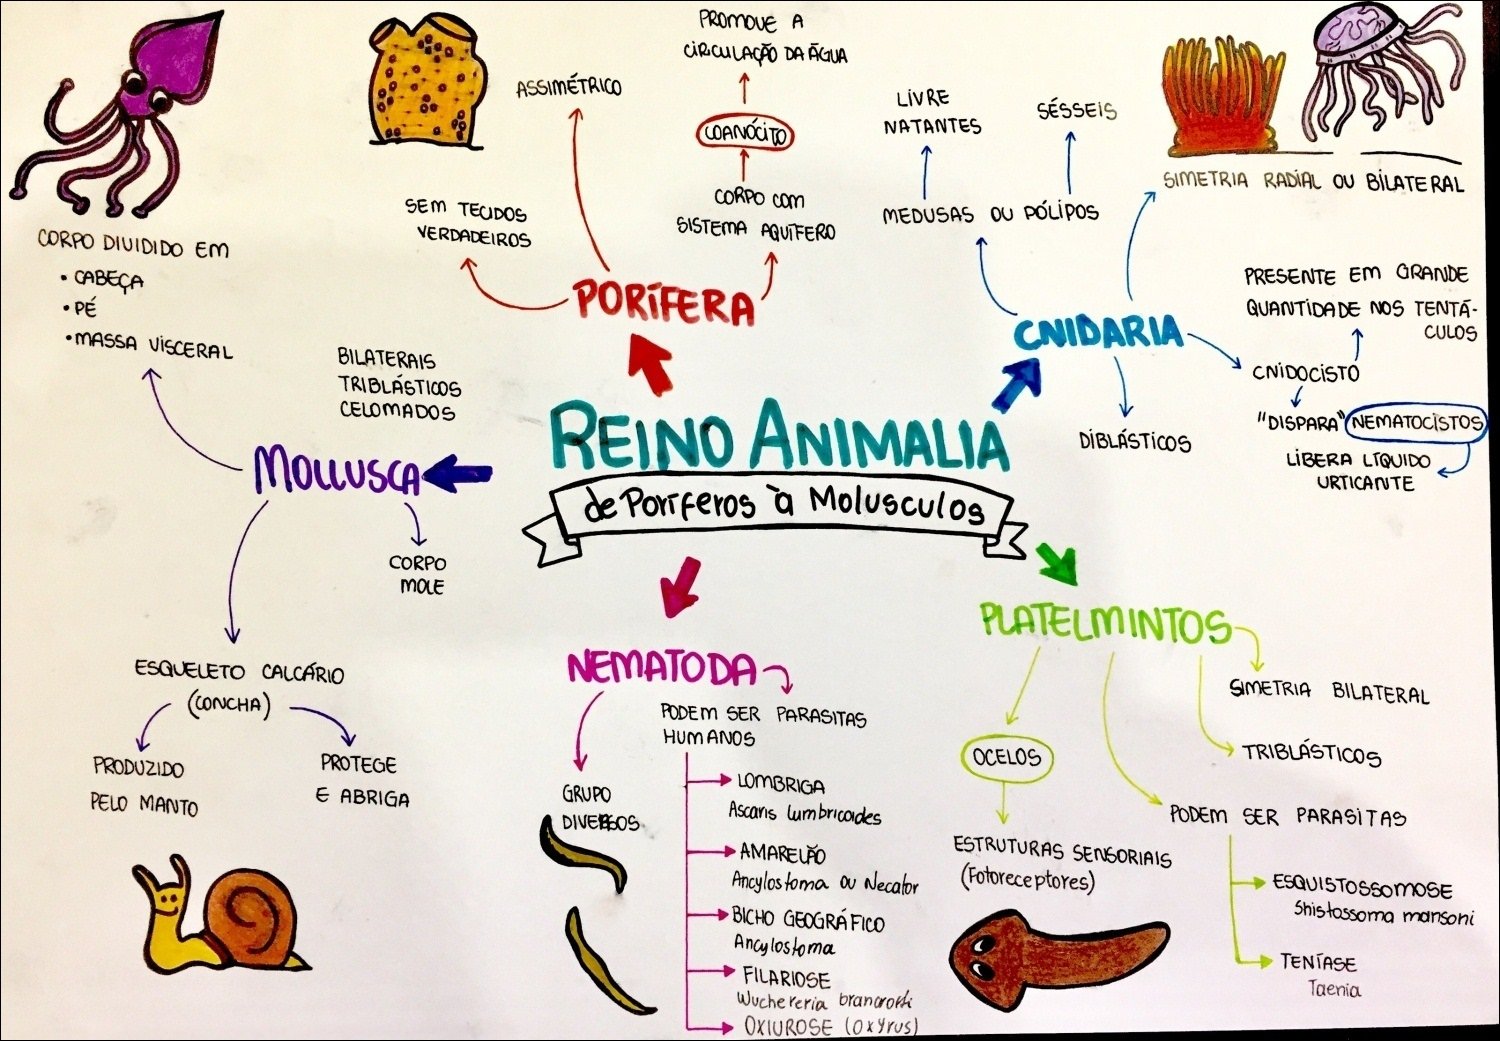 REINO ANIMALIA
de Poríferos à Moluscos
PORÍFERA
SEM TECIDOS
VERDADEIROS
ASSIMÉTRICO
CORPO COM
SISTEMA AQUÍFERO
COANÓCITO
PROMOVE A
CIRCULAÇÃO DA ÁGUA
CNIDARIA
MEDUSAS OU PÓLIPOS
LIVRE
NATANTES
SÉSSEIS
SIMETRIA RADIAL OU BILATERAL
DIBLÁSTICOS
CNIDOCISTO
PRESENTE EM GRANDE
QUANTIDADE NOS TENTÁ-
CULOS
"DISPARA" NEMATOCISTOS
LIBERA LÍQUIDO
URTICANTE
PLATELMINTOS
SIMETRIA BILATERAL
TRIBLÁSTICOS
PODEM SER PARASITAS
ESQUISTOSSOMOSE
Shistossoma mansoni
TENÍASE
Taenia
OCELOS
ESTRUTURAS SENSORIAIS
(Fotoreceptores)
NEMATODA
GRUPO
DIVERSOS
PODEM SER PARASITAS
HUMANOS
LOMBRIGA
Ascaris lumbricoides
AMARELÃO
Ancylostoma ou Necator
BICHO GEOGRÁFICO
Ancylostoma
FILARIOSE
Wuchereria brancrofti
OXIUROSE (oxyrus)
MOLLUSCA
BILATERAIS
TRIBLÁSTICOS
CELOMADOS
CORPO DIVIDIDO EM
• CABEÇA
• PÉ
• MASSA VISCERAL
CORPO
MOLE
ESQUELETO CALCÁRIO
(CONCHA)
PRODUZIDO
PELO MANTO
PROTEGE
E ABRIGA